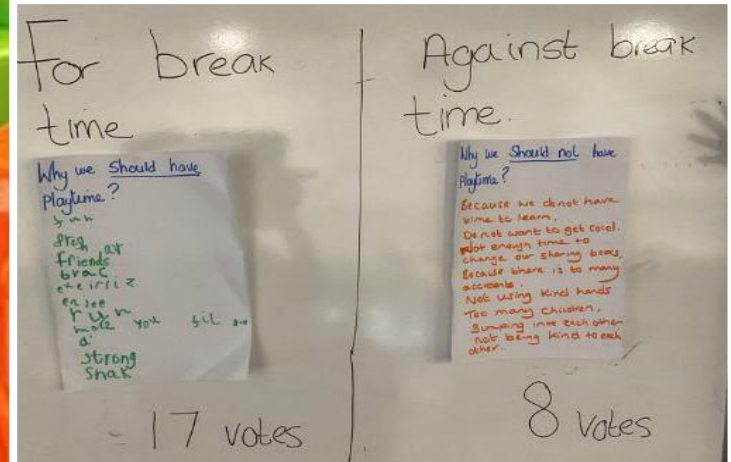 For break
time
Why we Should have
Playtime?
fun
fresh air
friends
brac
exeirsiz
enjee
run
make you fil
a
strong
Snak
= 17 votes
Against break
time.
Why we Should not have
Playtime?
Because we do not have
time to learn.
Do not want to get cold.
Not enough time to
change our sharing books,
Because there is to many
accidents.
Not using kind hands
Too many children,
Bumping into each other
not being kind to each
other.
8 votes